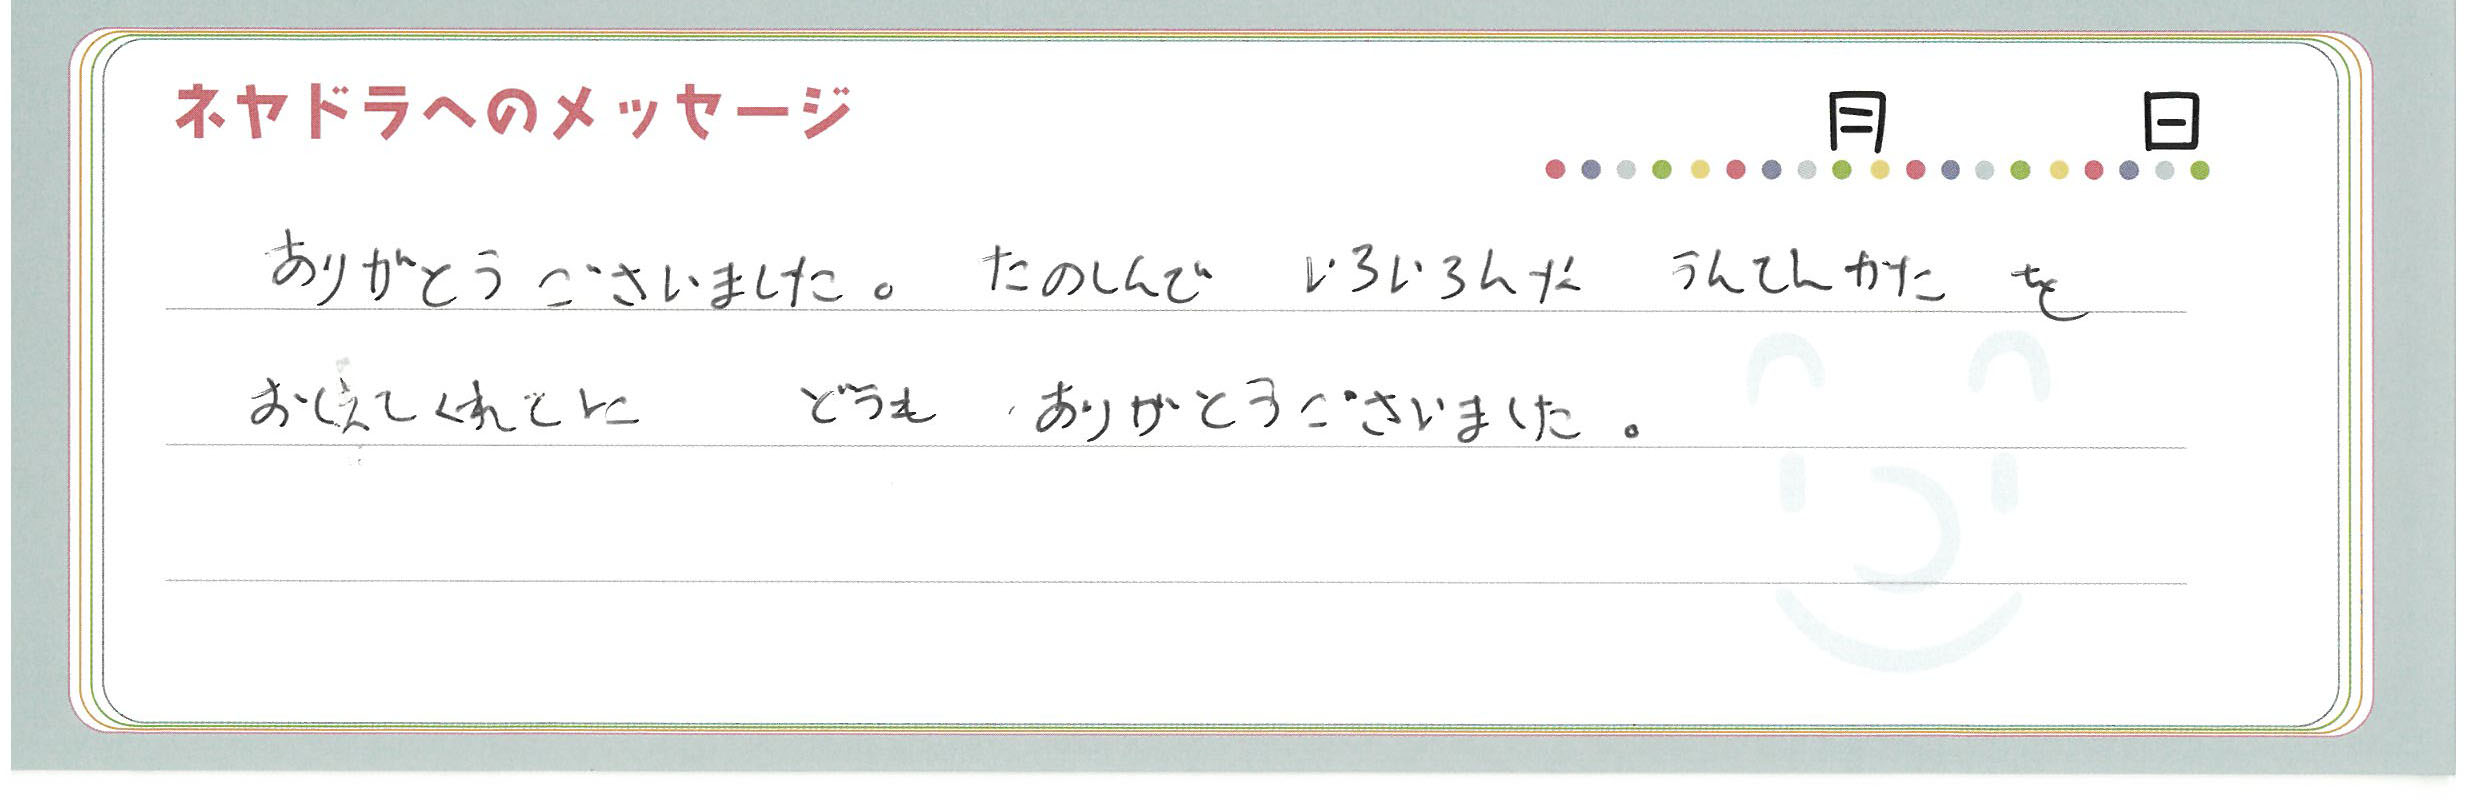 ネヤドラへのメッセージ
月 日
ありがとうございました。 たのしんで いろいろんな うんてんかた を
おしえてくれてに どうも ありがとうございました。